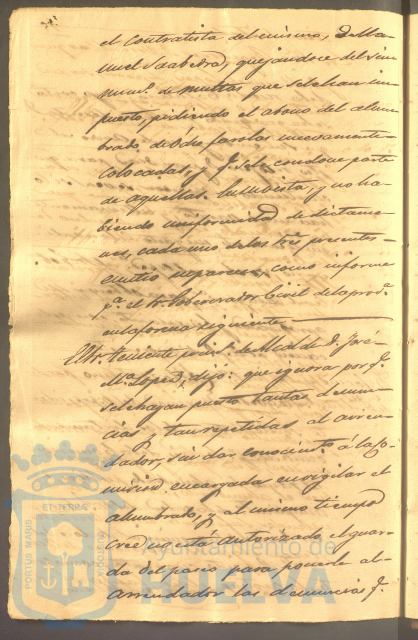 el Contratista del mismo, D. Ma-
nuel Saabedra, quejandose del sin
num.º de multas que se le han im-
puesto, pidiendo el abono del alum-
brado de dos farolas nuevamente
colocadas, y q.e se le condone parte
de aquellas. En su vista, y no ha-
biendo uniformidad de dictame-
nes, cada uno de los tres presentes
emitio su parecer, como informe
p.a el Sr. Gobernador Civil de la prov.a
en la forma siguiente
El Sr. Teniente prim.º de Alcalde D. José
M.a Lopez, dijo: que ignora por q.e
se le hayan puesto tantas denun-
cias y tan repetidas al arren-
dador, sin dar conocim.to á la Co-
mision encargada en vigilar el
alumbrado, y al mismo tiempo
cree no está autorizado el guar-
da del paseo para ponerle al
arrendador las denuncias q.e
PORTUS MARIS
ET TERRÆ
CUSTODIA
Ayuntamiento de
HUELVA